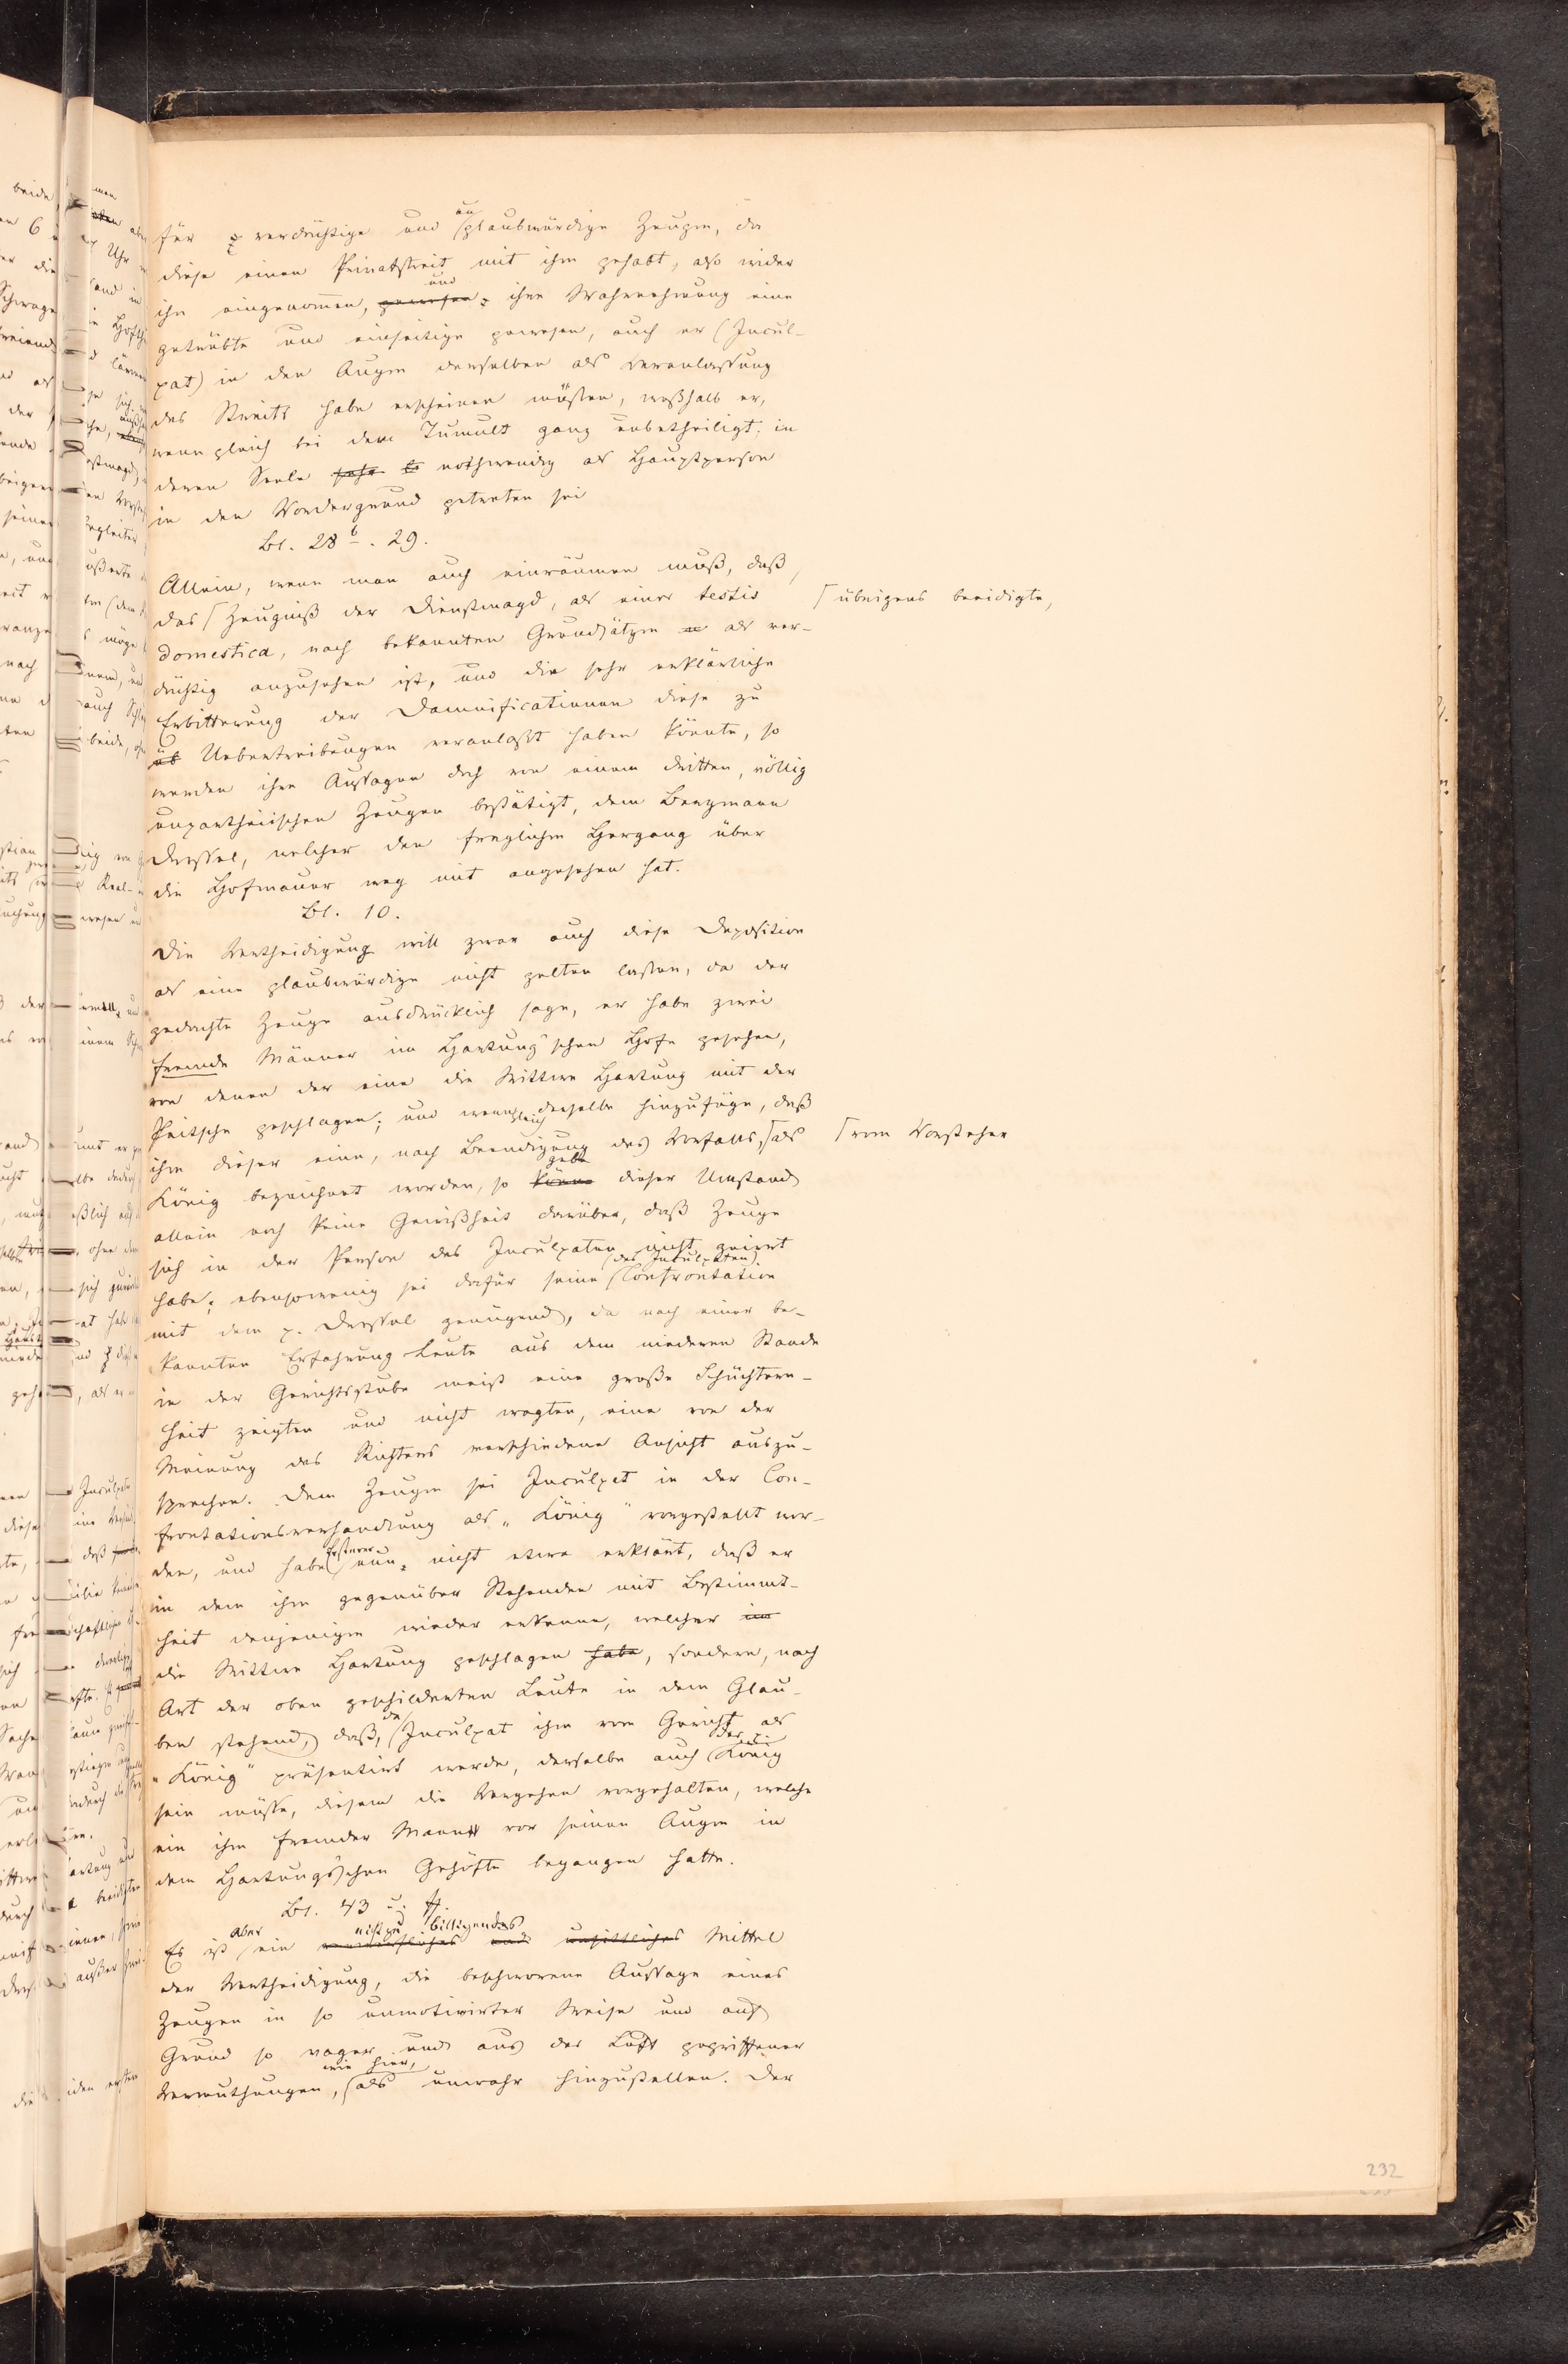 für verdächtige und unglaubwürdige Zeugen, da
diese einen Privatstreit mit ihm gehabt, also wider
ihn eingenommen, gewesen, und ihre Wahrnehmung eine
getrübte und einseitige gewesen, auch er (Incul-
pat) in den Augen derselben als Veranlassung
des Streits habe erscheinen müssen, weßhalb er,
wenn gleich bei dem Tumult ganz unbetheiligt, in
deren Seele nothwendig als Hauptperson
in den Vordergrund getreten sei
Bl. 28 b. 29.
Allein, wenn man auch einräumen muß, daß
das Zeugniß der Dienstmagd, als einer testis
übrigens beeidigte,
domestica, nach bekannten Grundsätzen als ver-
dächtig anzusehen ist, und die sehr erklärliche
Erbitterung der Damnificatinnen diese zu
üb Uebertreibungen veranlaßt haben könnte, so
werden ihre Aussagen doch von einem dritten, völlig
unpartheiischen Zeugen bestätigt, dem Bergmann
Dressel, welcher den fraglichen Hergang über
die Hofmauer weg mit angesehen hat.
Bl. 10.
Die Vertheidigung will zwar auch diese Deposition
als eine glaubwürdige nicht gelten lassen, da der
gedachte Zeuge ausdrücklich sage, er habe zwei
fremde Männer im Hartung'schen Hofe gesehen,
von denen der eine die Wittwe Hartung mit der
Peitsche geschlagen; und wenn gleich derselbe hinzufüge, daß
ihm dieser eine, nach Beendigung des Vorfalls, als
vom Vorsteher
König bezeichnet worden, so könne gebe dieser Umstand
allein noch keine Gewißheit darüber, daß Zeuge
sich in der Person des Inculpaten nicht geirrt
habe; ebensowenig sei dafür seine (des Inculpaten) Confrontation
mit dem p. Dressel genügend, da nach einer be-
kannten Erfahrung Leute aus dem niederen Stande
in der Gerichtsstube meist eine große Schüchtern-
heit zeigten und nicht wagten, eine von der
Meinung des Richters verschiedene Ansicht auszu-
sprechen. Dem Zeugen sei Inculpat in der Con-
frontationsverhandlung als „König" vorgestellt wor-
den, und habe Ersterer nun nicht etwa erklärt, daß er
in dem ihm gegenüber Stehenden mit Bestimmt-
heit denjenigen wieder erkenne, welcher im
die Wittwe Hartung geschlagen habe, sondern, nach
Art der oben geschilderten Leute in dem Glau-
ben stehend, daß, da Inculpat ihm vom Gericht als
„König" präsentirt werde, derselbe auch der König
sein müsse, diesem die Vergehen vorgehalten, welche
ein ihm fremder Mann vor seinen Augen in
dem Hartung'schen Gehöfte begangen hatte.
Bl. 43 u. ff.
Es ist aber ein nicht zu billigendes verwerfliches und unsittliches Mittel
der Vertheidigung, die beschworene Aussage eines
Zeugen in so unmotivirter Weise und auf
Grund so vager und aus der Luft gegriffener
Vermuthungen, wie hier, als unwahr hinzustellen. Der
232